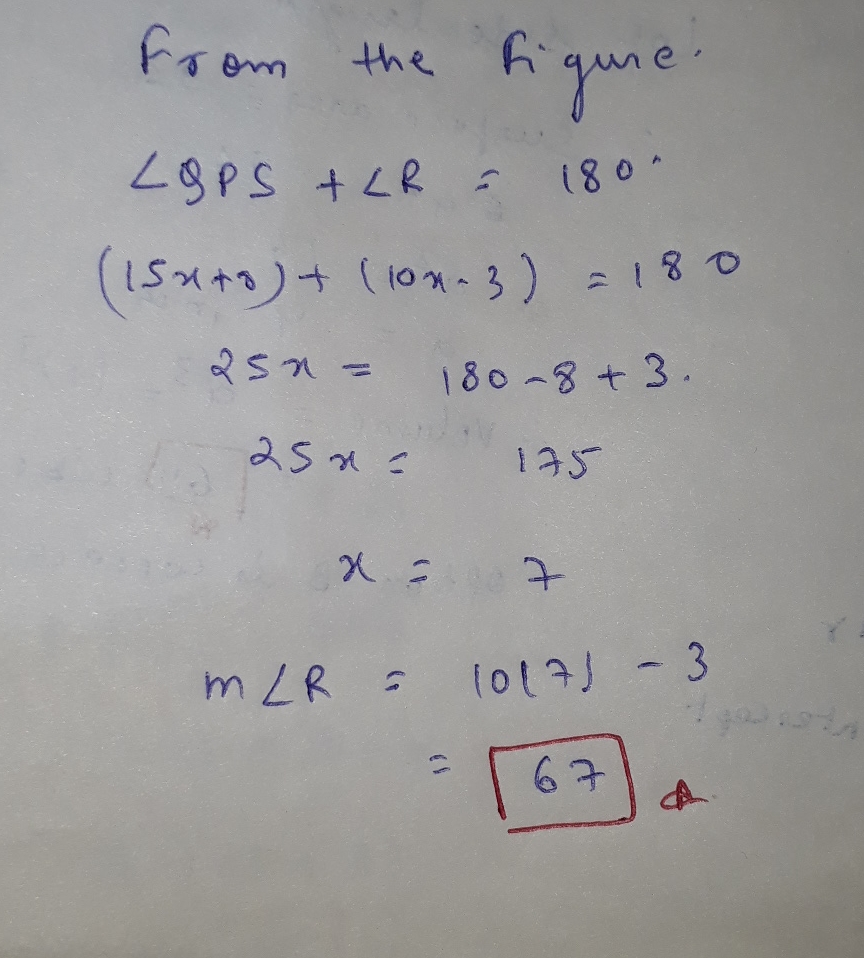 From the figure.
∠QPS + ∠R = 180°
(15x+8)+(10x-3) = 180
25x = 180-8+3.
25x = 175
x = 7
m∠R = 10(7) - 3
= 67